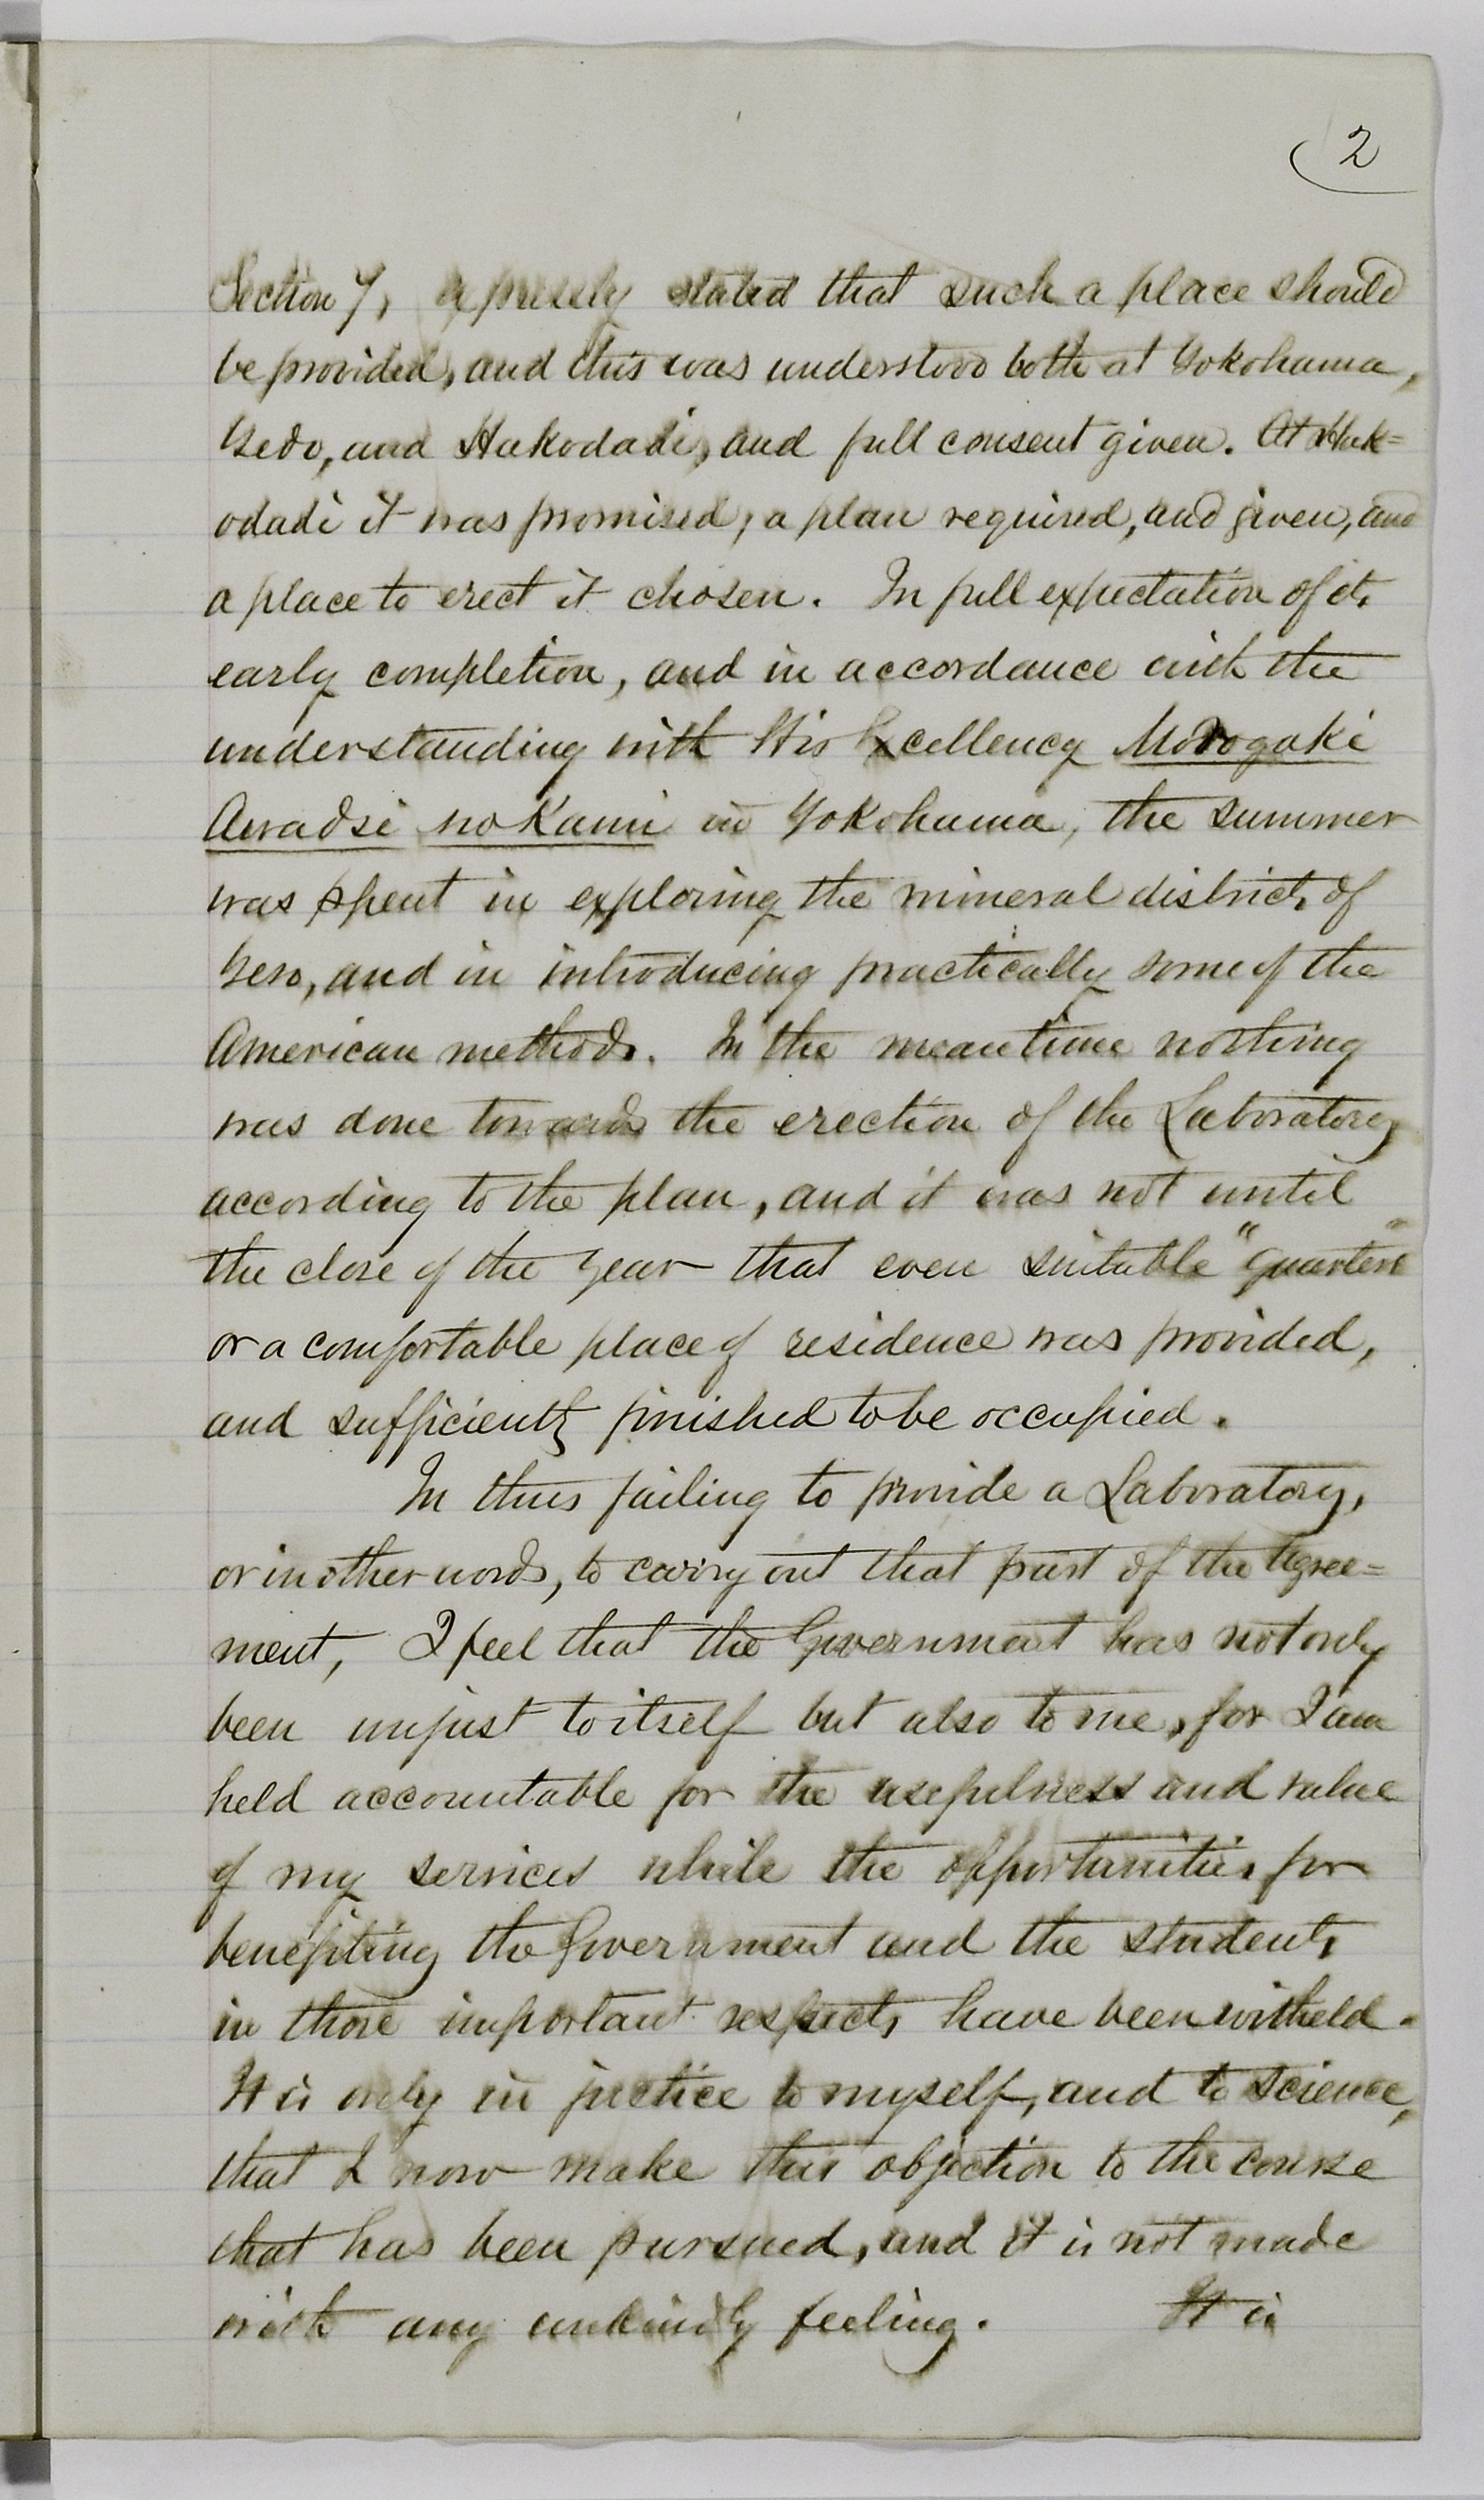 2
Section 7, expressly stated that such a place should
be provided, and this was understood both at Yokohama,
Yedo, and Hakodadi, and full consent given. At Hak=
odadi it was promised, a plan required, and given, and
a place to erect it chosen. In full expectation of its
early completion, and in accordance with the
understanding with His Excellency Morogaki
Awadsi no Kami in Yokohama, the summer
was spent in exploring the mineral districts of
Yeso, and in introducing practically some of the
American methods. In the meantime nothing
was done towards the erection of the Laboratory
according to the plan, and it was not until
the close of the year that even suitable "quarters"
or a comfortable place of residence was provided,
and sufficiently finished to be occupied.
In thus failing to provide a Laboratory,
or in other words, to carry out that part of the Agree=
ment, I feel that the Government has not only
been unjust to itself but also to me, for I am
held accountable for the usefulness and value
of my services while the opportunities for
benefiting the Government and the students
in those important respects have been witheld.
It is only in justice to myself, and to science,
that I now make this objection to the course
that has been pursued, and it is not made
with any unkindly feeling. It is